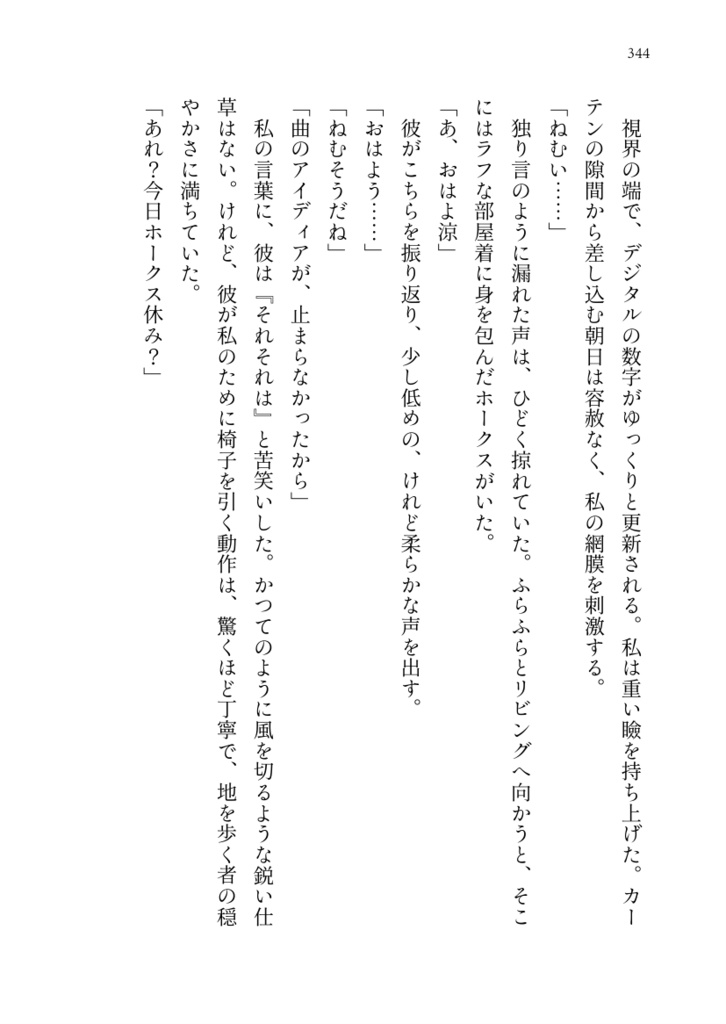 344
　視界の端で、デジタルの数字がゆっくりと更新される。私は重い瞼を持ち上げた。カー
テンの隙間から差し込む朝日は容赦なく、私の網膜を刺激する。
「ねむい……」
　独り言のように漏れた声は、ひどく掠れていた。ふらふらとリビングへ向かうと、そこ
にはラフな部屋着に身を包んだホークスがいた。
「あ、おはよ涼」
　彼がこちらを振り返り、少し低めの、けれど柔らかな声を出す。
「おはよう……」
「ねむそうだね」
「曲のアイディアが、止まらなかったから」
　私の言葉に、彼は『それそれは』と苦笑いした。かつてのように風を切るような鋭い仕
草はない。けれど、彼が私のために椅子を引く動作は、驚くほど丁寧で、地を歩く者の穏
やかさに満ちていた。
「あれ？今日ホークス休み？」